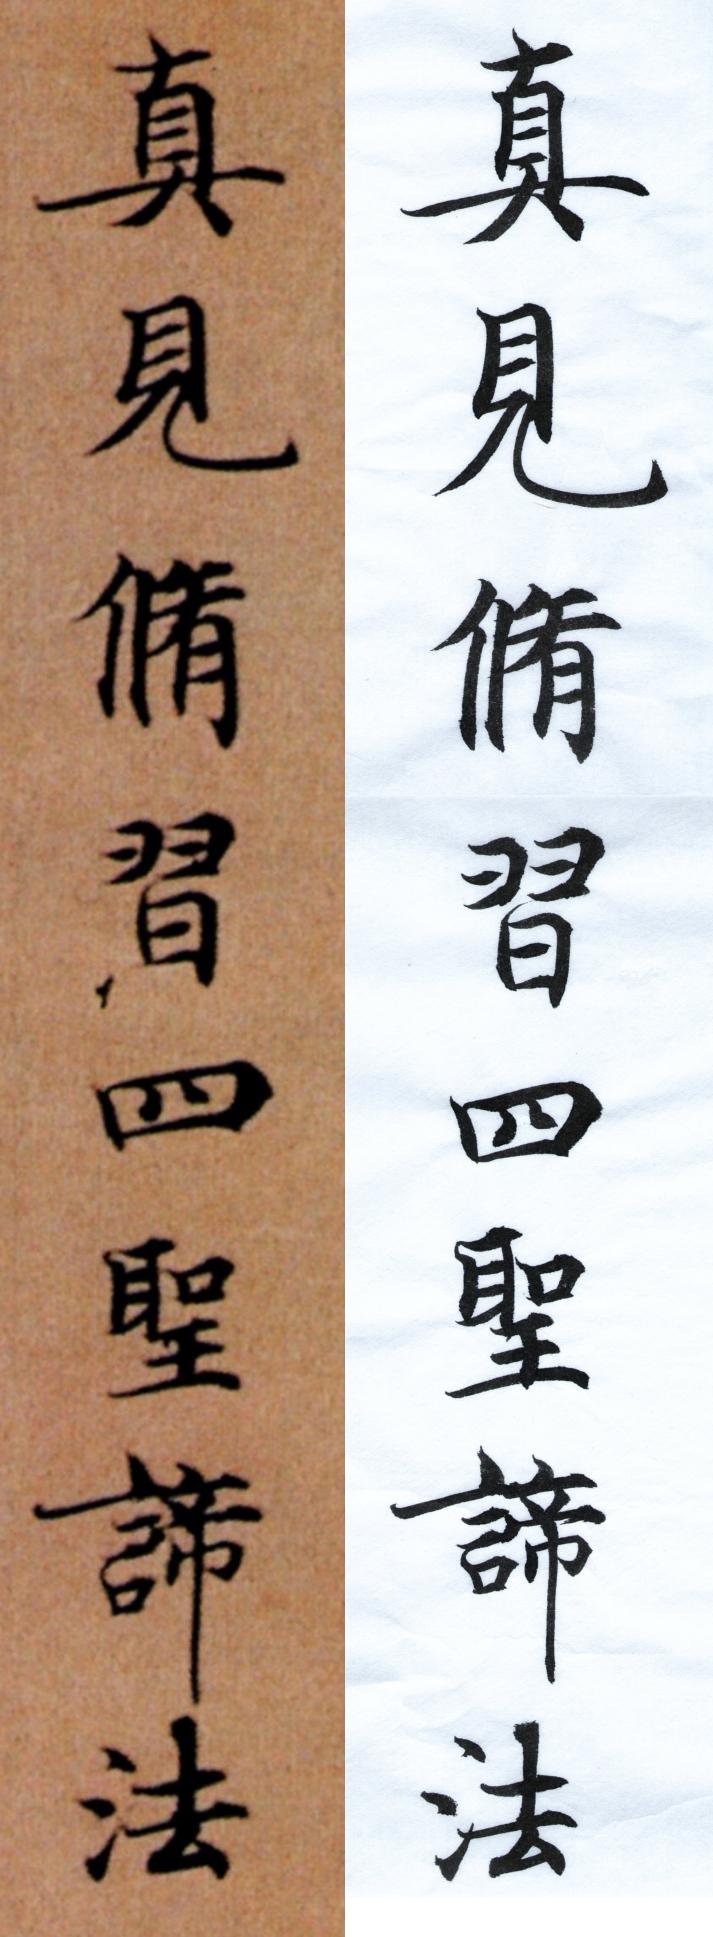 真見脩習四聖諦法
真見脩習四聖諦法